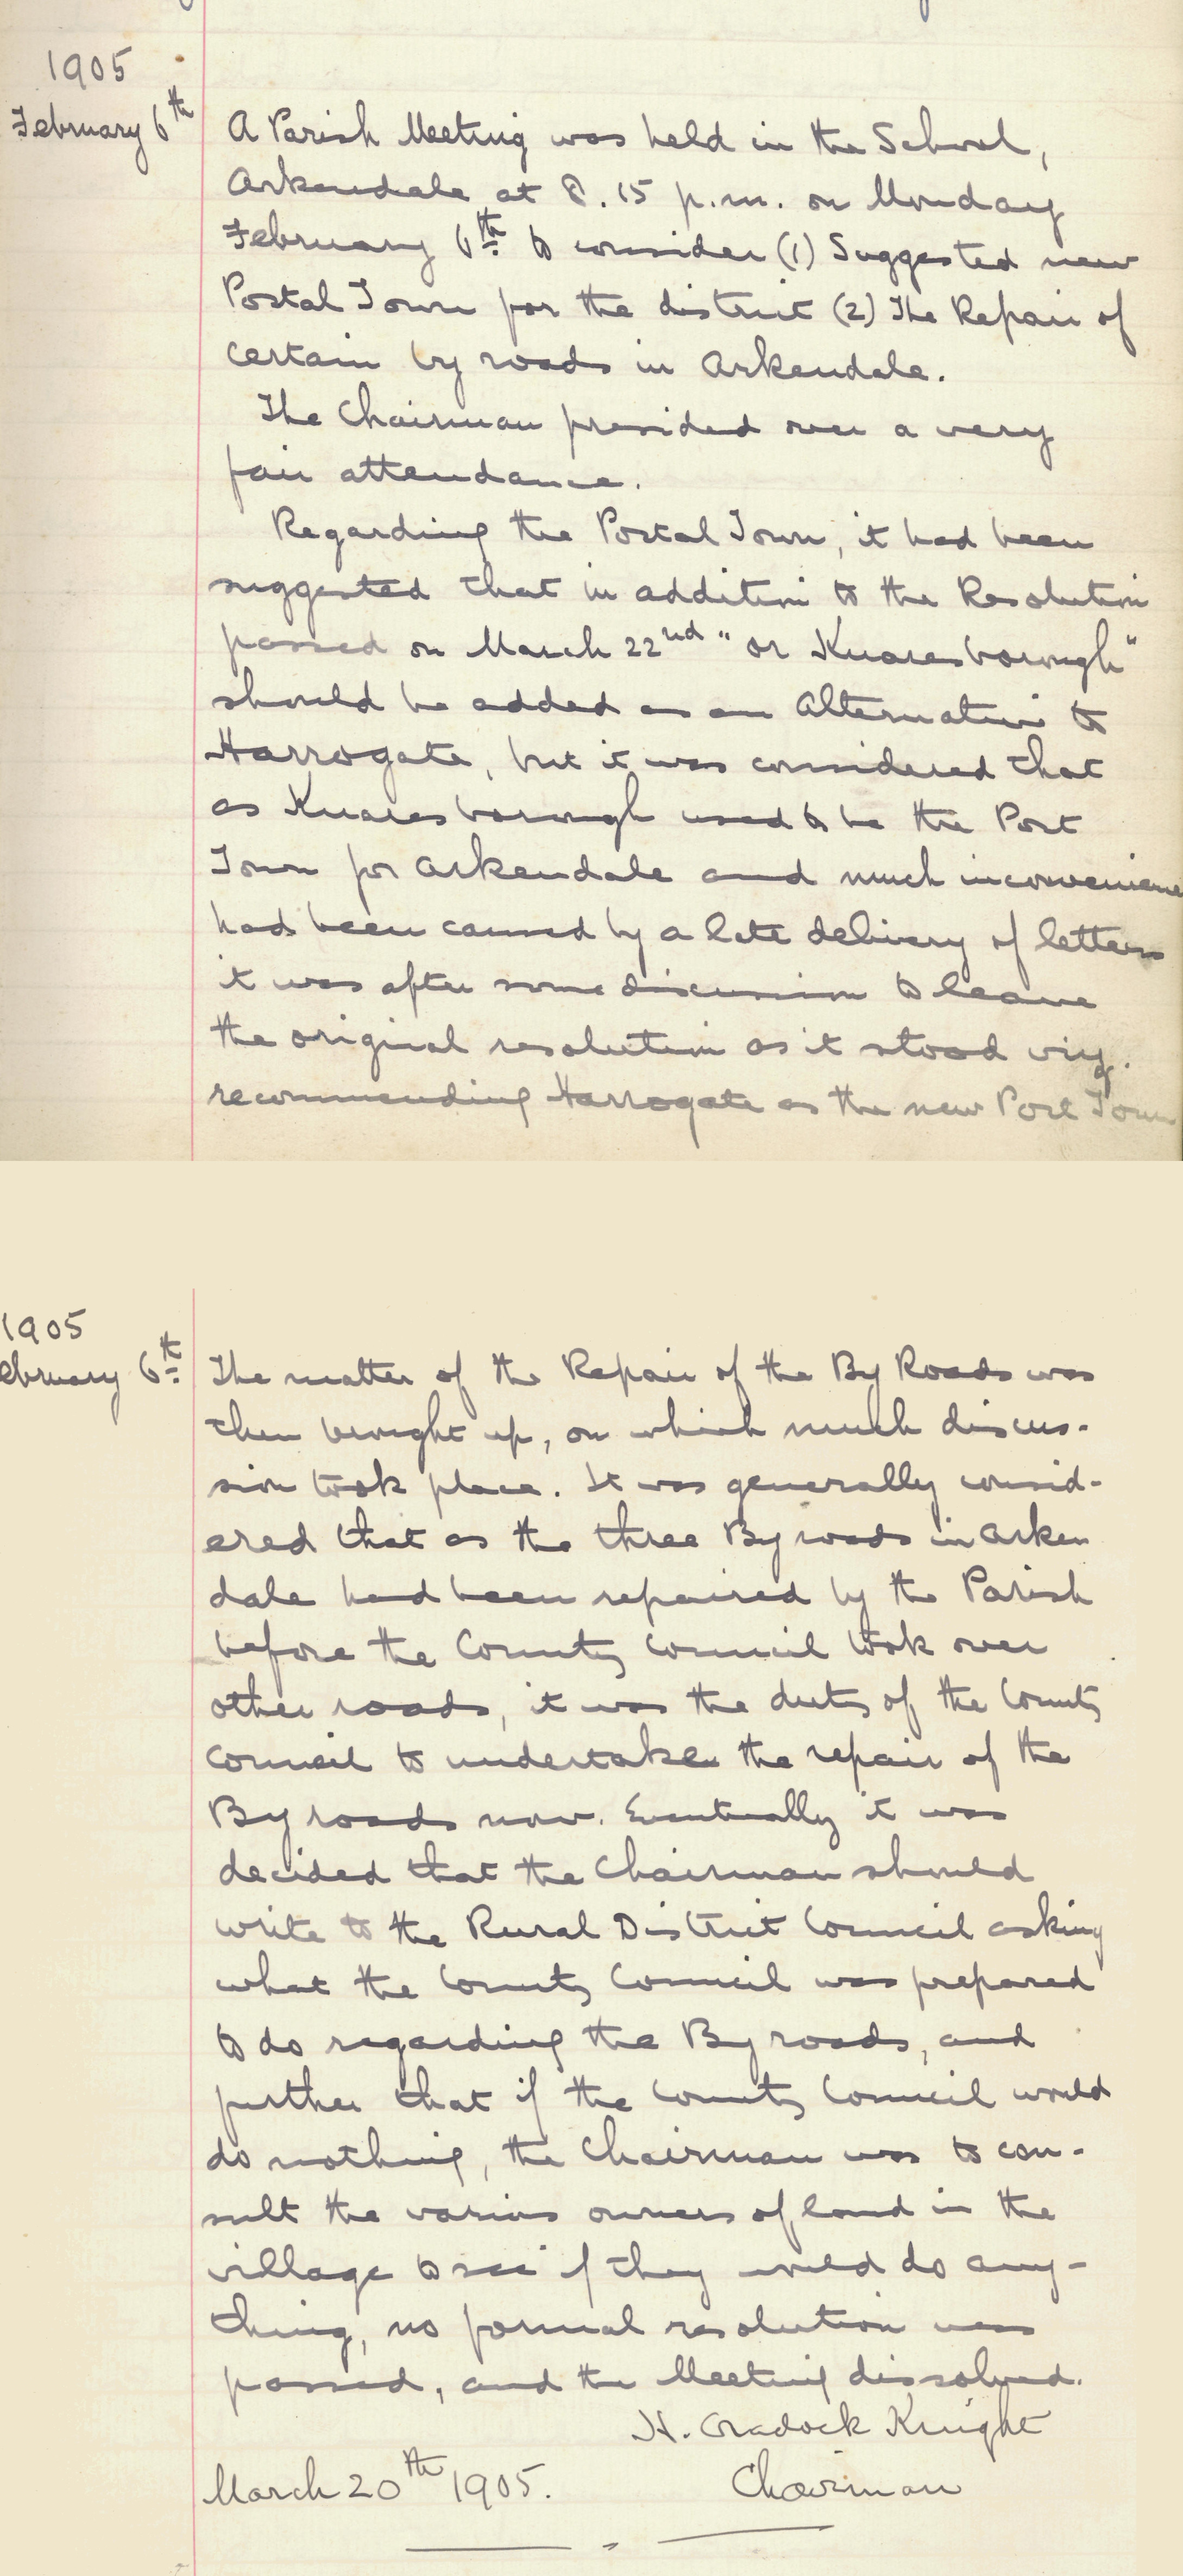 1905
February 6th
A Parish Meeting was held in the School,
Arkendale at 8.15 p.m. on Monday
February 6th to consider (1) Suggested new
Postal Town for the district (2) The Repair of
certain by roads in Arkendale.
The Chairman presided over a very
fair attendance.
Regarding the Postal Town, it had been
suggested that in addition to the Resolution
passed on March 22nd "or Knaresborough"
should be added as an Alternative to
Harrogate, but it was considered that
as Knaresborough used to be the Post
Town for Arkendale and much inconvenience
had been caused by a late delivery of letters
it was after some discussion to leave
the original resolution as it stood viz.
recommending Harrogate as the new Post Town
1905
ebruary 6th
The matter of the Repair of the By Roads was
then brought up, on which much discus-
sion took place. It was generally consid-
ered that as the three By roads in Arken
dale had been repaired by the Parish
before the County Council took over
other roads, it was the duty of the County
Council to undertake the repair of the
By roads now. Eventually it was
decided that the Chairman should
write to the Rural District Council asking
what the County Council was prepared
to do regarding the By roads, and
further that if the County Council would
do nothing, the Chairman was to con-
sult the various owners of land in the
village to see if they would do any-
thing, no formal resolution was
passed, and the Meeting dissolved.
H. Cradock Knight
March 20th 1905. Chairman